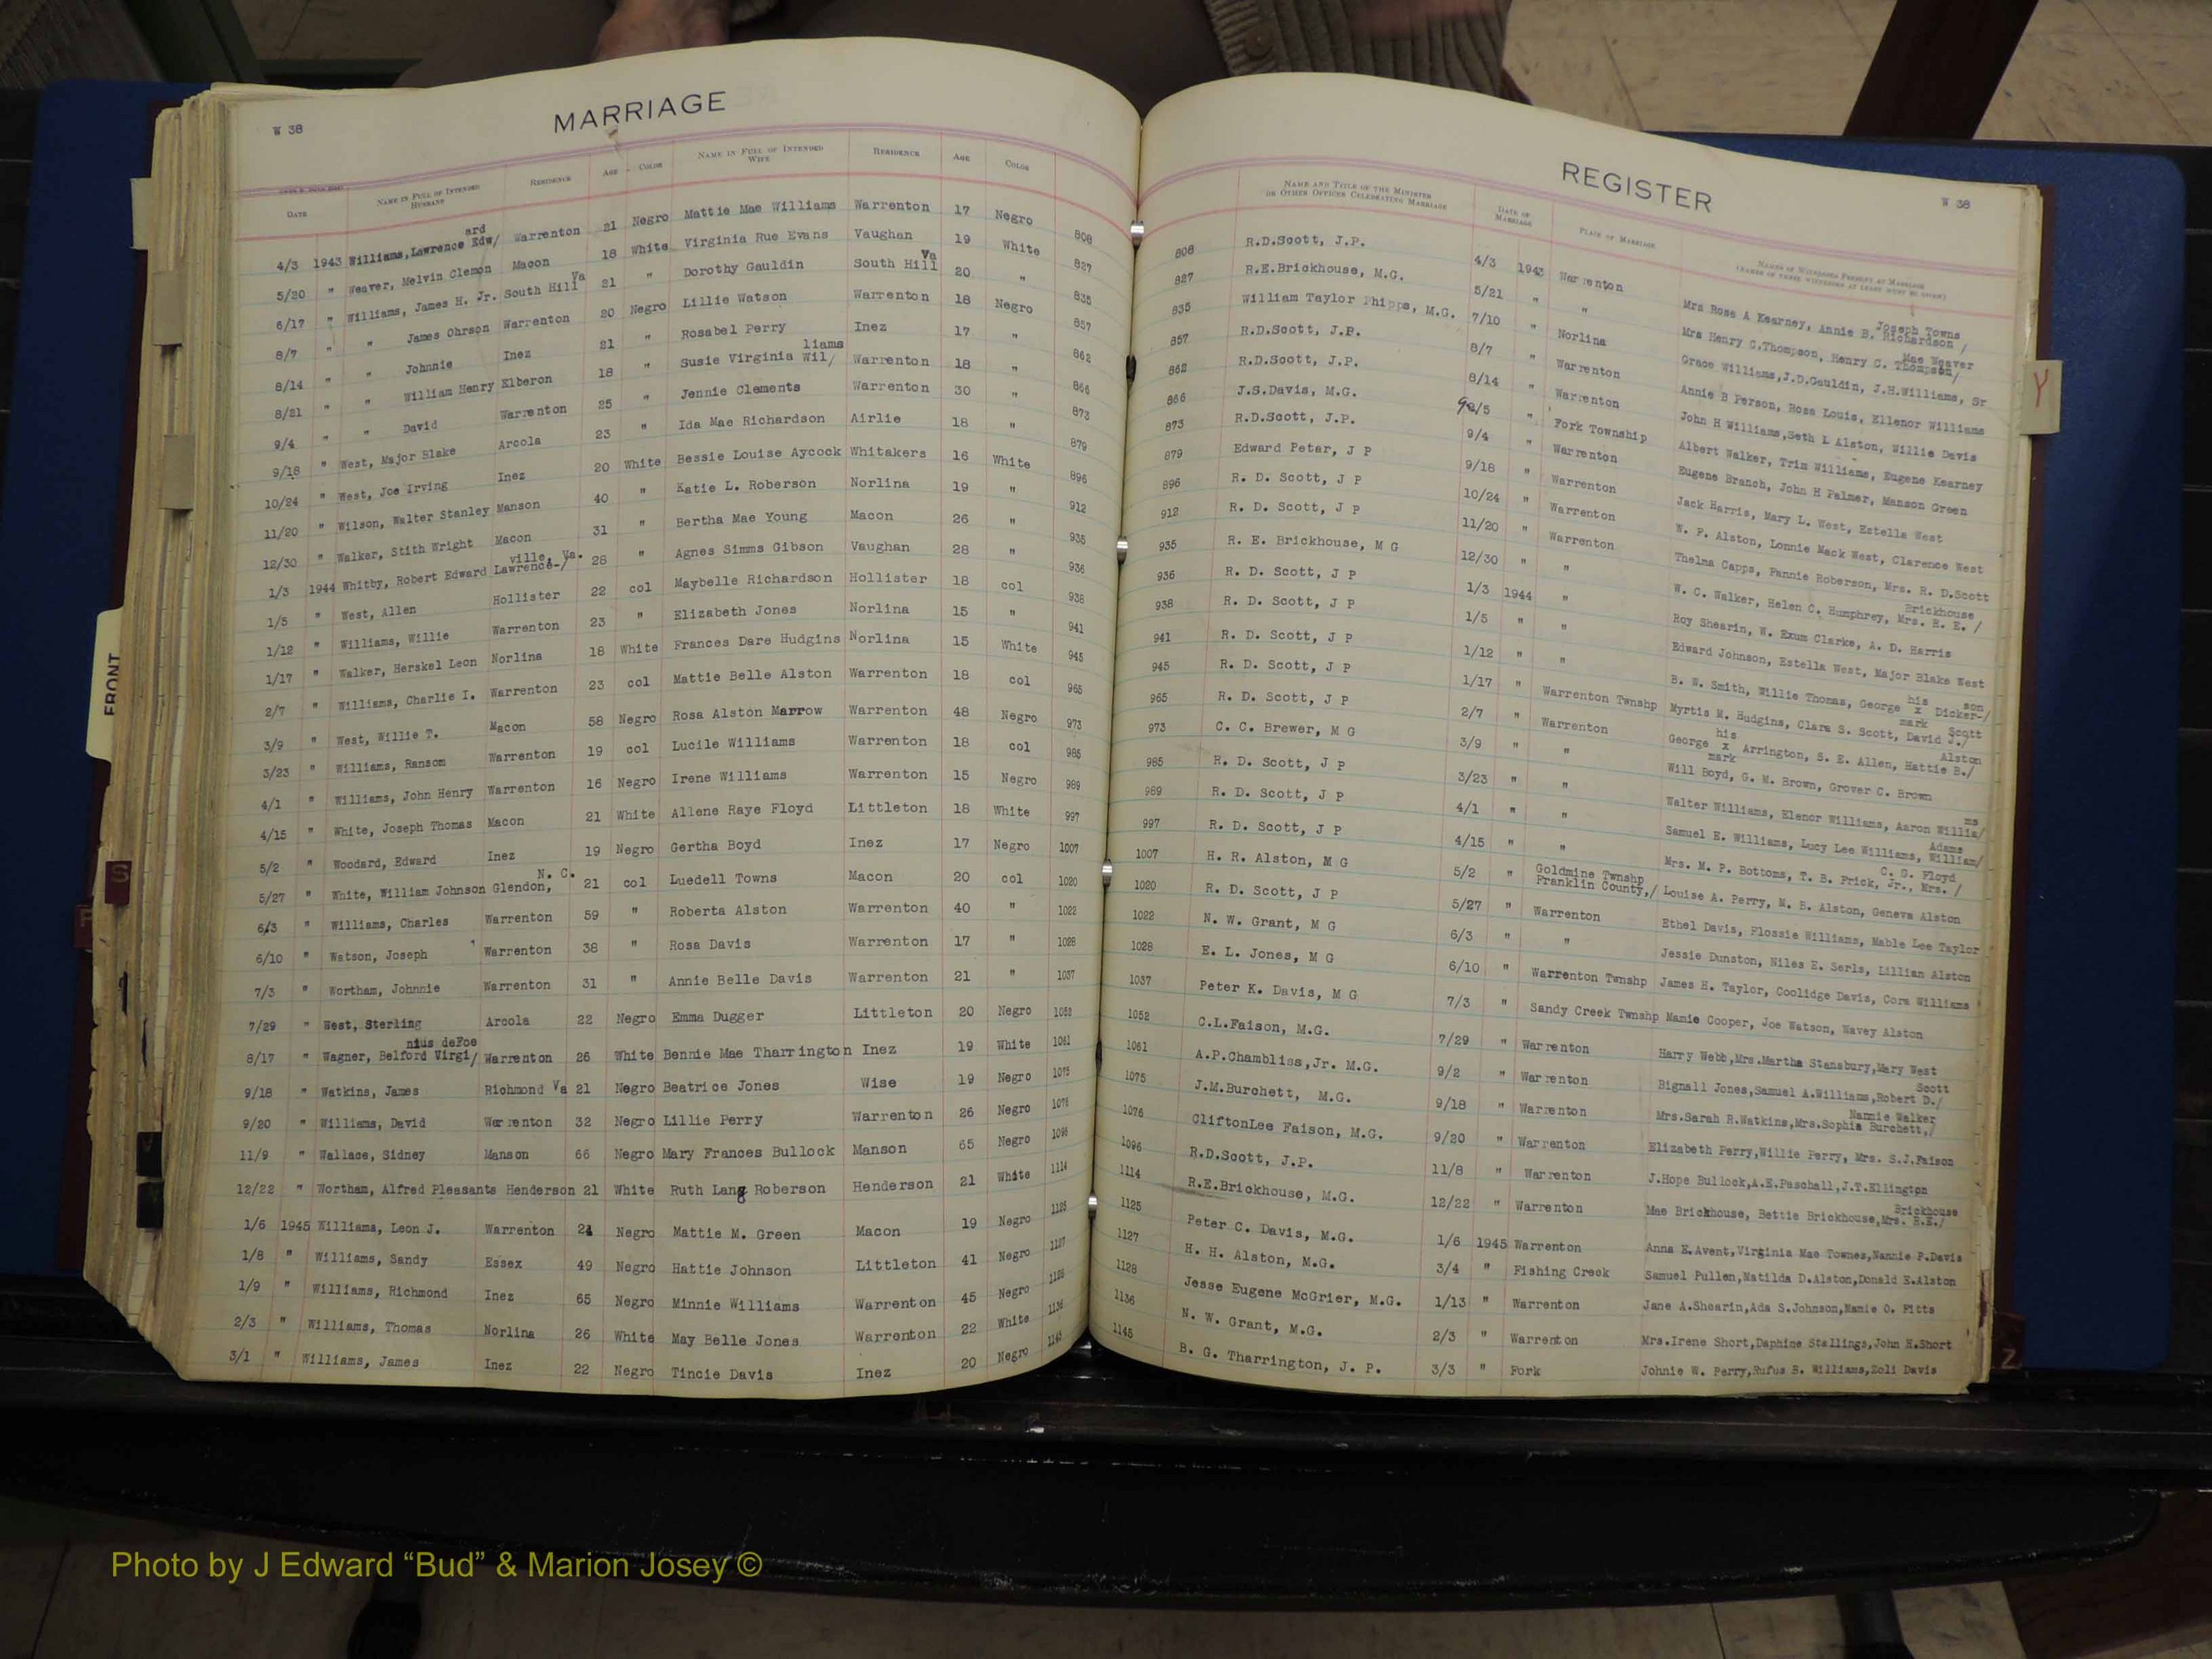 W 38
MARRIAGE
DATE NAME IN FULL OF INTENDED HUSBAND RESIDENCE AGE COLOR NAME IN FULL OF INTENDED WIFE RESIDENCE AGE COLOR
4/3 1943 Williams, Lawrence Edw/ard Warrenton 21 Negro Mattie Mae Williams Warrenton 17 Negro 808
5/20 " Weaver, Melvin Clemon Macon 18 White Virginia Rue Evans Vaughan 19 White 827
6/17 " Williams, James H. Jr. South Hill Va 21 " Dorothy Gauldin South Hill Va 20 " 835
8/7 " " James Ohrson Warrenton 20 Negro Lillie Watson Warrenton 18 Negro 857
8/14 " " Johnnie Inez 21 " Rosabel Perry Inez 17 " 862
8/21 " " William Henry Elberon 18 " Susie Virginia Wil/liams Warrenton 18 " 866
9/4 " " David Warrenton 25 " Jennie Clements Warrenton 30 " 873
9/18 " West, Major Blake Arcola 23 " Ida Mae Richardson Airlie 18 " 879
10/24 " West, Joe Irving Inez 20 White Bessie Louise Aycock Whitakers 16 White 896
11/20 " Wilson, Walter Stanley Manson 40 " Katie L. Roberson Norlina 19 " 912
12/30 " Walker, Stith Wright Macon 31 " Bertha Mae Young Macon 26 " 935
1/3 1944 Whitby, Robert Edward Lawrence-/ville, Va. 28 " Agnes Simms Gibson Vaughan 28 " 936
1/5 " West, Allen Hollister 22 col Maybelle Richardson Hollister 18 col 938
1/12 " Williams, Willie Warrenton 23 " Elizabeth Jones Norlina 15 " 941
1/17 " Walker, Herskel Leon Norlina 18 White Frances Dare Hudgins Norlina 15 White 945
2/7 " Williams, Charlie I. Warrenton 23 col Mattie Belle Alston Warrenton 18 col 965
3/9 " West, Willie T. Macon 58 Negro Rosa Alston Marrow Warrenton 48 Negro 973
3/23 " Williams, Ransom Warrenton 19 col Lucile Williams Warrenton 18 col 985
4/1 " Williams, John Henry Warrenton 16 Negro Irene Williams Warrenton 15 Negro 989
4/15 " White, Joseph Thomas Macon 21 White Allene Raye Floyd Littleton 18 White 997
5/2 " Woodard, Edward Inez 19 Negro Gertha Boyd Inez 17 Negro 1007
5/27 " White, William Johnson Glendon, N. C. 21 col Luedell Towns Macon 20 col 1020
6/3 " Williams, Charles Warrenton 59 " Roberta Alston Warrenton 40 " 1022
6/10 " Watson, Joseph Warrenton 38 " Rosa Davis Warrenton 17 " 1028
7/3 " Wortham, Johnnie Warrenton 31 " Annie Belle Davis Warrenton 21 " 1037
7/29 " West, Sterling Arcola 22 Negro Emma Dugger Littleton 20 Negro 1052
8/17 " Wagner, Belford Virgi/nius deFoe Warrenton 26 White Bennie Mae Tharrington Inez 19 White 1061
9/18 " Watkins, James Richmond Va 21 Negro Beatrice Jones Wise 19 Negro 1075
9/20 " Williams, David Warrenton 32 Negro Lillie Perry Warrenton 26 Negro 1076
11/9 " Wallace, Sidney Manson 66 Negro Mary Frances Bullock Manson 65 Negro 1096
12/22 " Wortham, Alfred Pleasants Henderson 21 White Ruth Lang Roberson Henderson 21 White 1114
1/6 1945 Williams, Leon J. Warrenton 24 Negro Mattie M. Green Macon 19 Negro 1125
1/8 " Williams, Sandy Essex 49 Negro Hattie Johnson Littleton 41 Negro 1127
1/9 " Williams, Richmond Inez 65 Negro Minnie Williams Warrenton 45 Negro 1128
2/3 " Williams, Thomas Norlina 26 White May Belle Jones Warrenton 22 White 1136
3/1 " Williams, James Inez 22 Negro Tincie Davis Inez 20 Negro 1145
REGISTER
W 38
NAME AND TITLE OF THE MINISTER OR OTHER OFFICER CELEBRATING MARRIAGE DATE OF MARRIAGE PLACE OF MARRIAGE NAMES OF WITNESSES PRESENT AT MARRIAGE (NAMES OF THREE WITNESSES AT LEAST MUST BE GIVEN)
808 R.D.Scott, J.P. 4/3 1943 Warrenton Mrs Rosa A Kearney, Annie B. Richardson / Joseph Towns
827 R.E.Brickhouse, M.G. 5/21 " " Mrs Henry C.Thompson, Henry C. Thompson/ Mae Weaver
835 William Taylor Phipps, M.G. 7/10 " Norlina Grace Williams,J.D.Gauldin, J.H.Williams, Sr
857 R.D.Scott, J.P. 8/7 " Warrenton Annie B Person, Rosa Louis, Ellenor Williams
862 R.D.Scott, J.P. 8/14 " Warrenton John H Williams,Seth L Alston, Willie Davis
866 J.S.Davis, M.G. 9/5 " Fork Township Albert Walker, Trim Williams, Eugene Kearney
873 R.D.Scott, J.P. 9/4 " Warrenton Eugene Branch, John H Palmer, Manson Green
879 Edward Petar, J P 9/18 " Warrenton Jack Harris, Mary L. West, Estella West
896 R. D. Scott, J P 10/24 " Warrenton W. P. Alston, Lonnie Mack West, Clarence West
912 R. D. Scott, J P 11/20 " Warrenton Thelma Capps, Fannie Roberson, Mrs. R. D.Scott
935 R. E. Brickhouse, M G 12/30 " " W. C. Walker, Helen C. Humphrey, Mrs. R. E. / Brickhouse
936 R. D. Scott, J P 1/3 1944 " Roy Shearin, W. Exum Clarke, A. D. Harris
938 R. D. Scott, J P 1/5 " " Edward Johnson, Estella West, Major Blake West
941 R. D. Scott, J P 1/12 " " B. W. Smith, Willie Thomas, George his x mark Dicker-/son
945 R. D. Scott, J P 1/17 " Warrenton Twnshp Myrtis M. Hudgins, Clara S. Scott, David J./ Scott
965 R. D. Scott, J P 2/7 " Warrenton George his x mark Arrington, S. E. Allen, Hattie B./ Alston
973 C. C. Brewer, M G 3/9 " " Will Boyd, G. M. Brown, Grover C. Brown
985 R. D. Scott, J P 3/23 " " Walter Williams, Elenor Williams, Aaron Willia/ms
989 R. D. Scott, J P 4/1 " " Samuel E. Williams, Lucy Lee Williams, William/ Adams
997 R. D. Scott, J P 4/15 " " Mrs. M. P. Bottoms, T. B. Frick, Jr., Mrs. / C. G. Floyd
1007 H. R. Alston, M G 5/2 " Goldmine Twnshp Franklin County,/ Louise A. Perry, M. B. Alston, Geneva Alston
1020 R. D. Scott, J P 5/27 " Warrenton Ethel Davis, Flossie Williams, Mable Lee Taylor
1022 N. W. Grant, M G 6/3 " " Jessie Dunston, Niles E. Serls, Lillian Alston
1028 E. L. Jones, M G 6/10 " Warrenton Twnshp James H. Taylor, Coolidge Davis, Cora Williams
1037 Peter K. Davis, M G 7/3 " Sandy Creek Twnshp Mamie Cooper, Joe Watson, Wavey Alston
1052 C.L.Faison, M.G. 7/29 " Warrenton Harry Webb,Mrs.Martha Stansbury,Mary West
1061 A.P.Chambliss,Jr. M.G. 9/2 " Warrenton Bignall Jones,Samuel A.Williams,Robert D./ Scott
1075 J.M.Burchett, M.G. 9/18 " Warrenton Mrs.Sarah R.Watkins,Mrs.Sophia Burchett,/ Nannie Walker
1076 CliftonLee Faison, M.G. 9/20 " Warrenton Elizabeth Perry,Willie Perry, Mrs. S.J.Faison
1096 R.D.Scott, J.P. 11/8 " Warrenton J.Hope Bullock,A.E.Paschall,J.T.Ellington
1114 R.E.Brickhouse, M.G. 12/22 " Warrenton Mae Brickhouse, Bettie Brickhouse,Mrs. R.E./ Brickhouse
1125 Peter C. Davis, M.G. 1/6 1945 Warrenton Anna E.Avent,Virginia Mae Townes,Nannie P.Davis
1127 H. H. Alston, M.G. 3/4 " Fishing Creek Samuel Pullen,Matilda D.Alston,Donald E.Alston
1128 Jesse Eugene McGrier, M.G. 1/13 " Warrenton Jane A.Shearin,Ada S.Johnson,Mamie O. Fitts
1136 N. W. Grant, M.G. 2/3 " Warrenton Mrs.Irene Short,Daphine Stallings,John H.Short
1145 B. G. Tharrington, J. P. 3/3 " Fork Johnie W. Perry,Rufus B. Williams,Zoli Davis
FRONT
S
Y
Z
Photo by J Edward “Bud” & Marion Josey ©